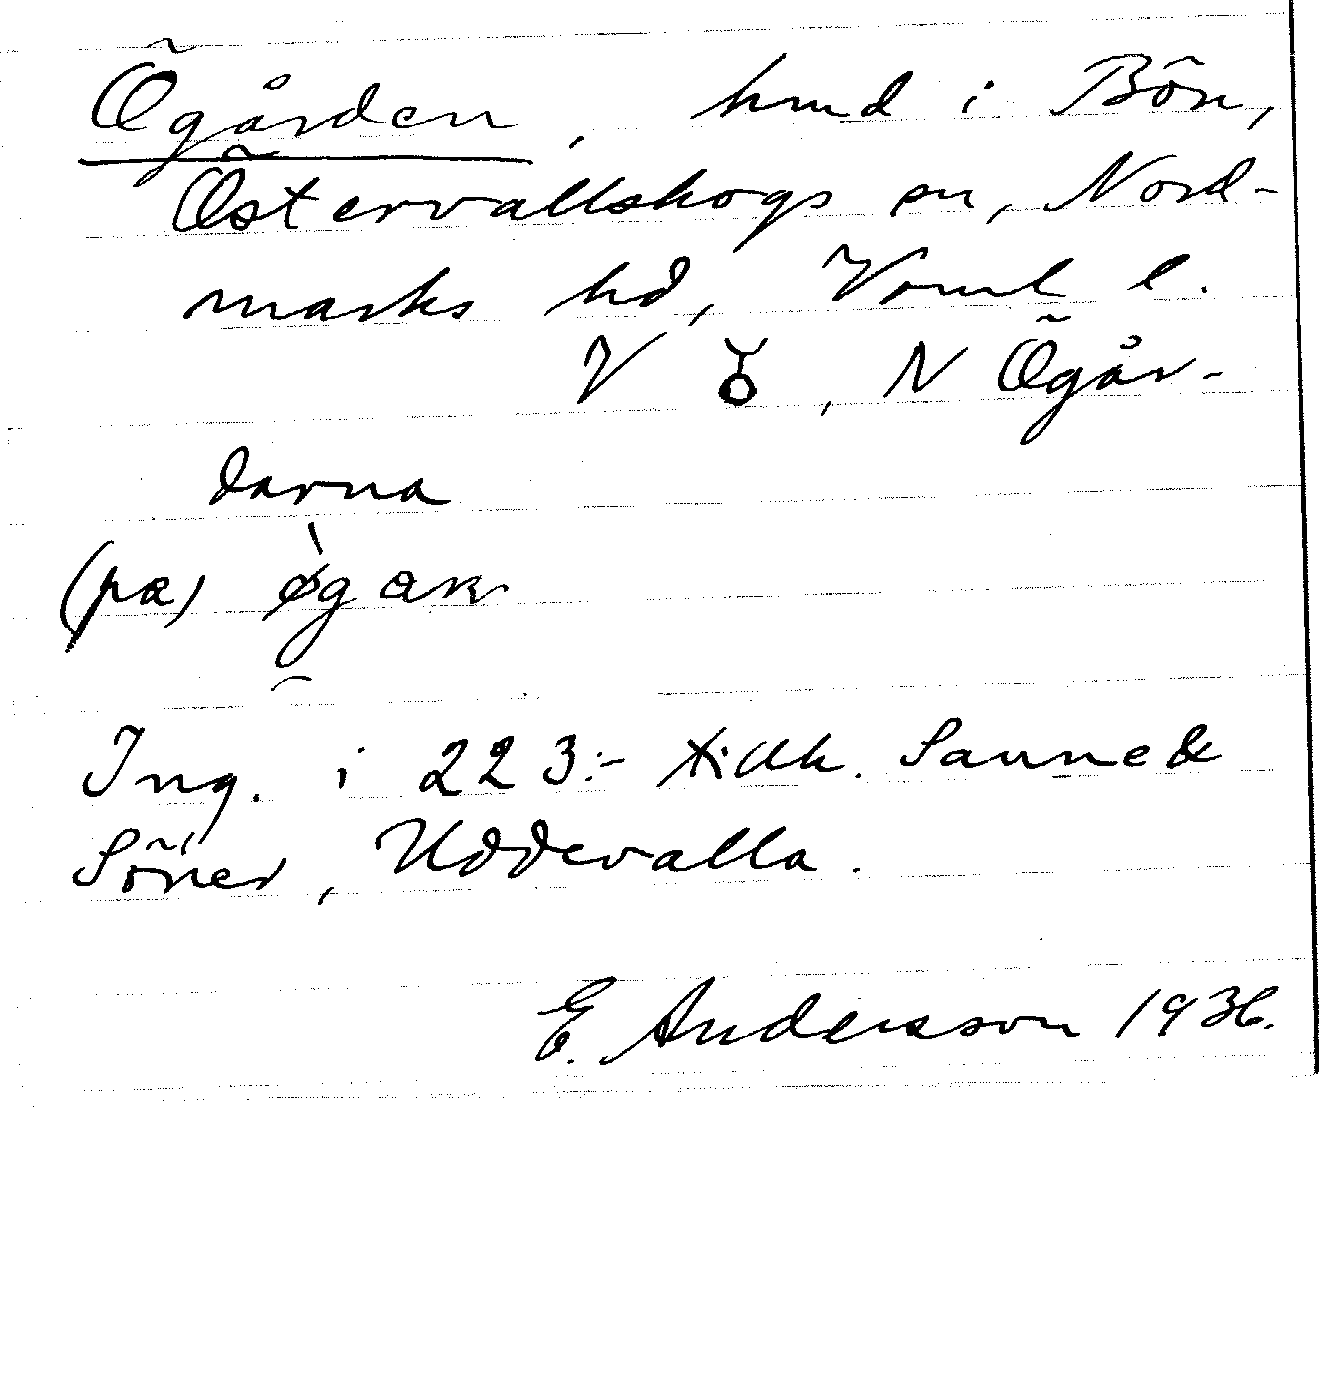 Ögården, hmd i Bön,
Östervallskogs sn, Nord-
marks hd, Vrml l.
V ♉, N Ögår-
darna
(pa)
Ing. i 223:- tillh. Sanne &
Söner, Uddevalla.
E. Andersson 1936.